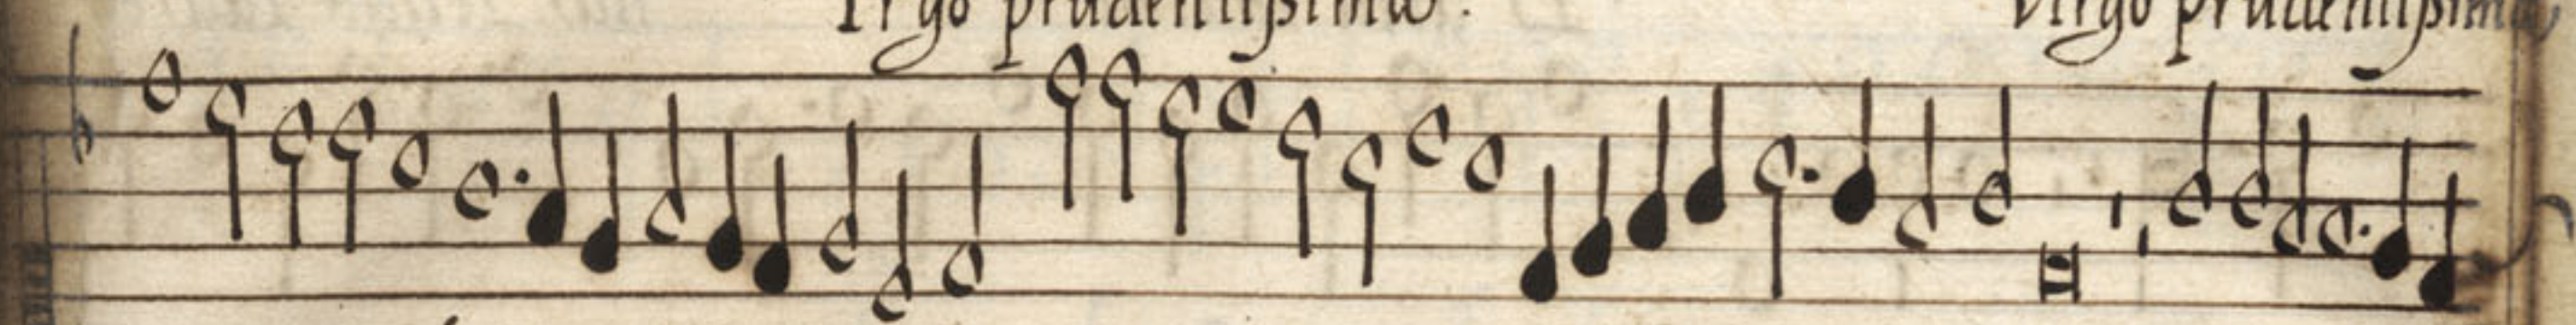 Irgo prudentissima. Virgo prudentissima,